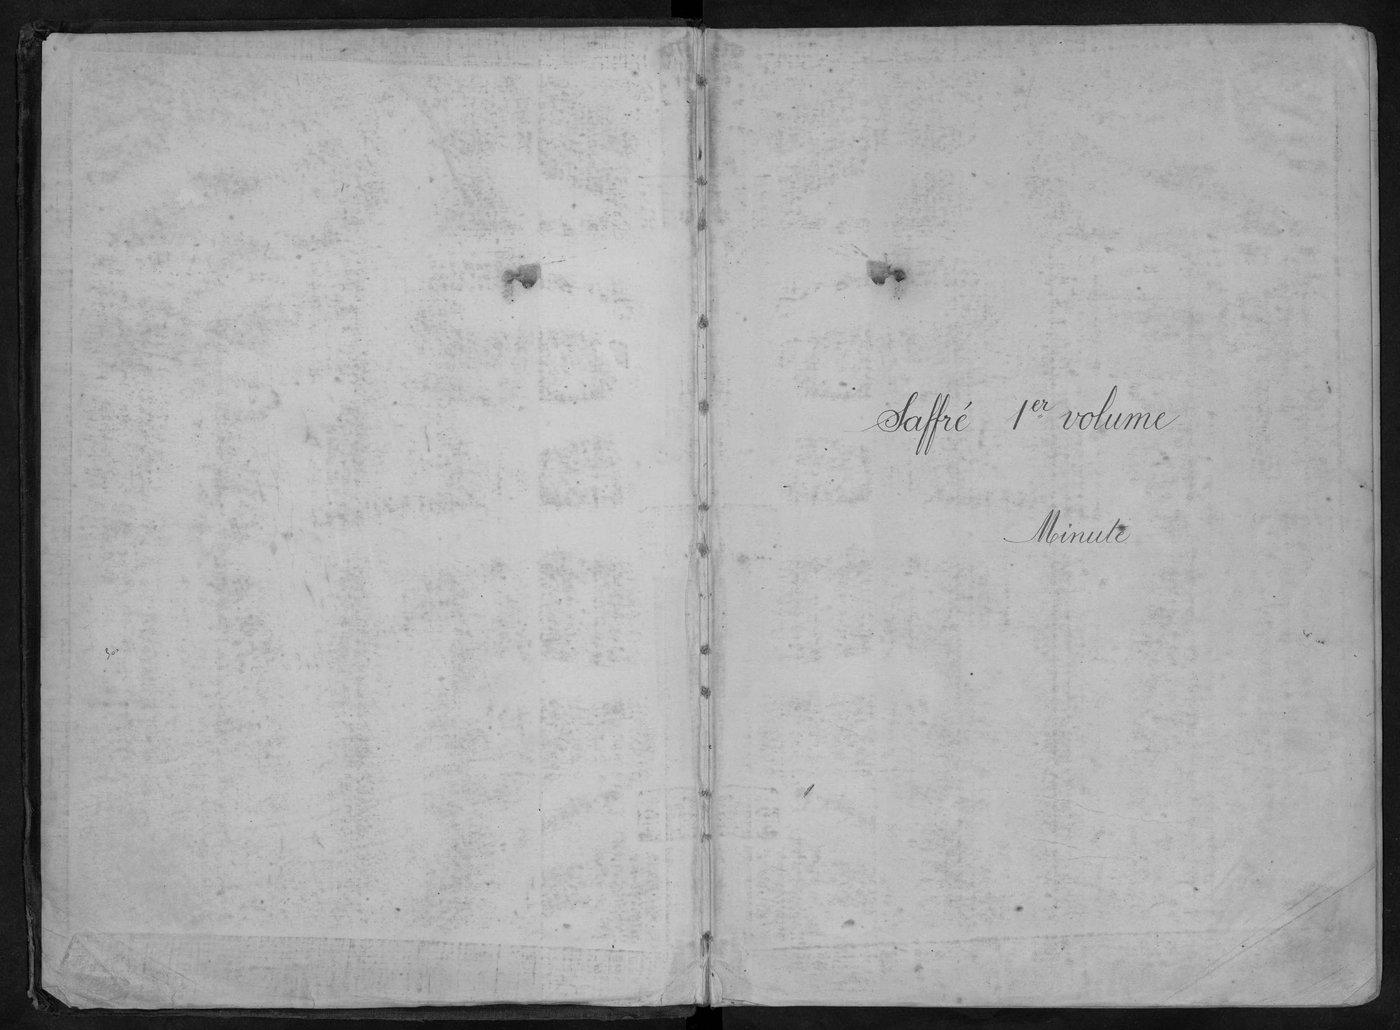 Saffré 1er volume
Minute